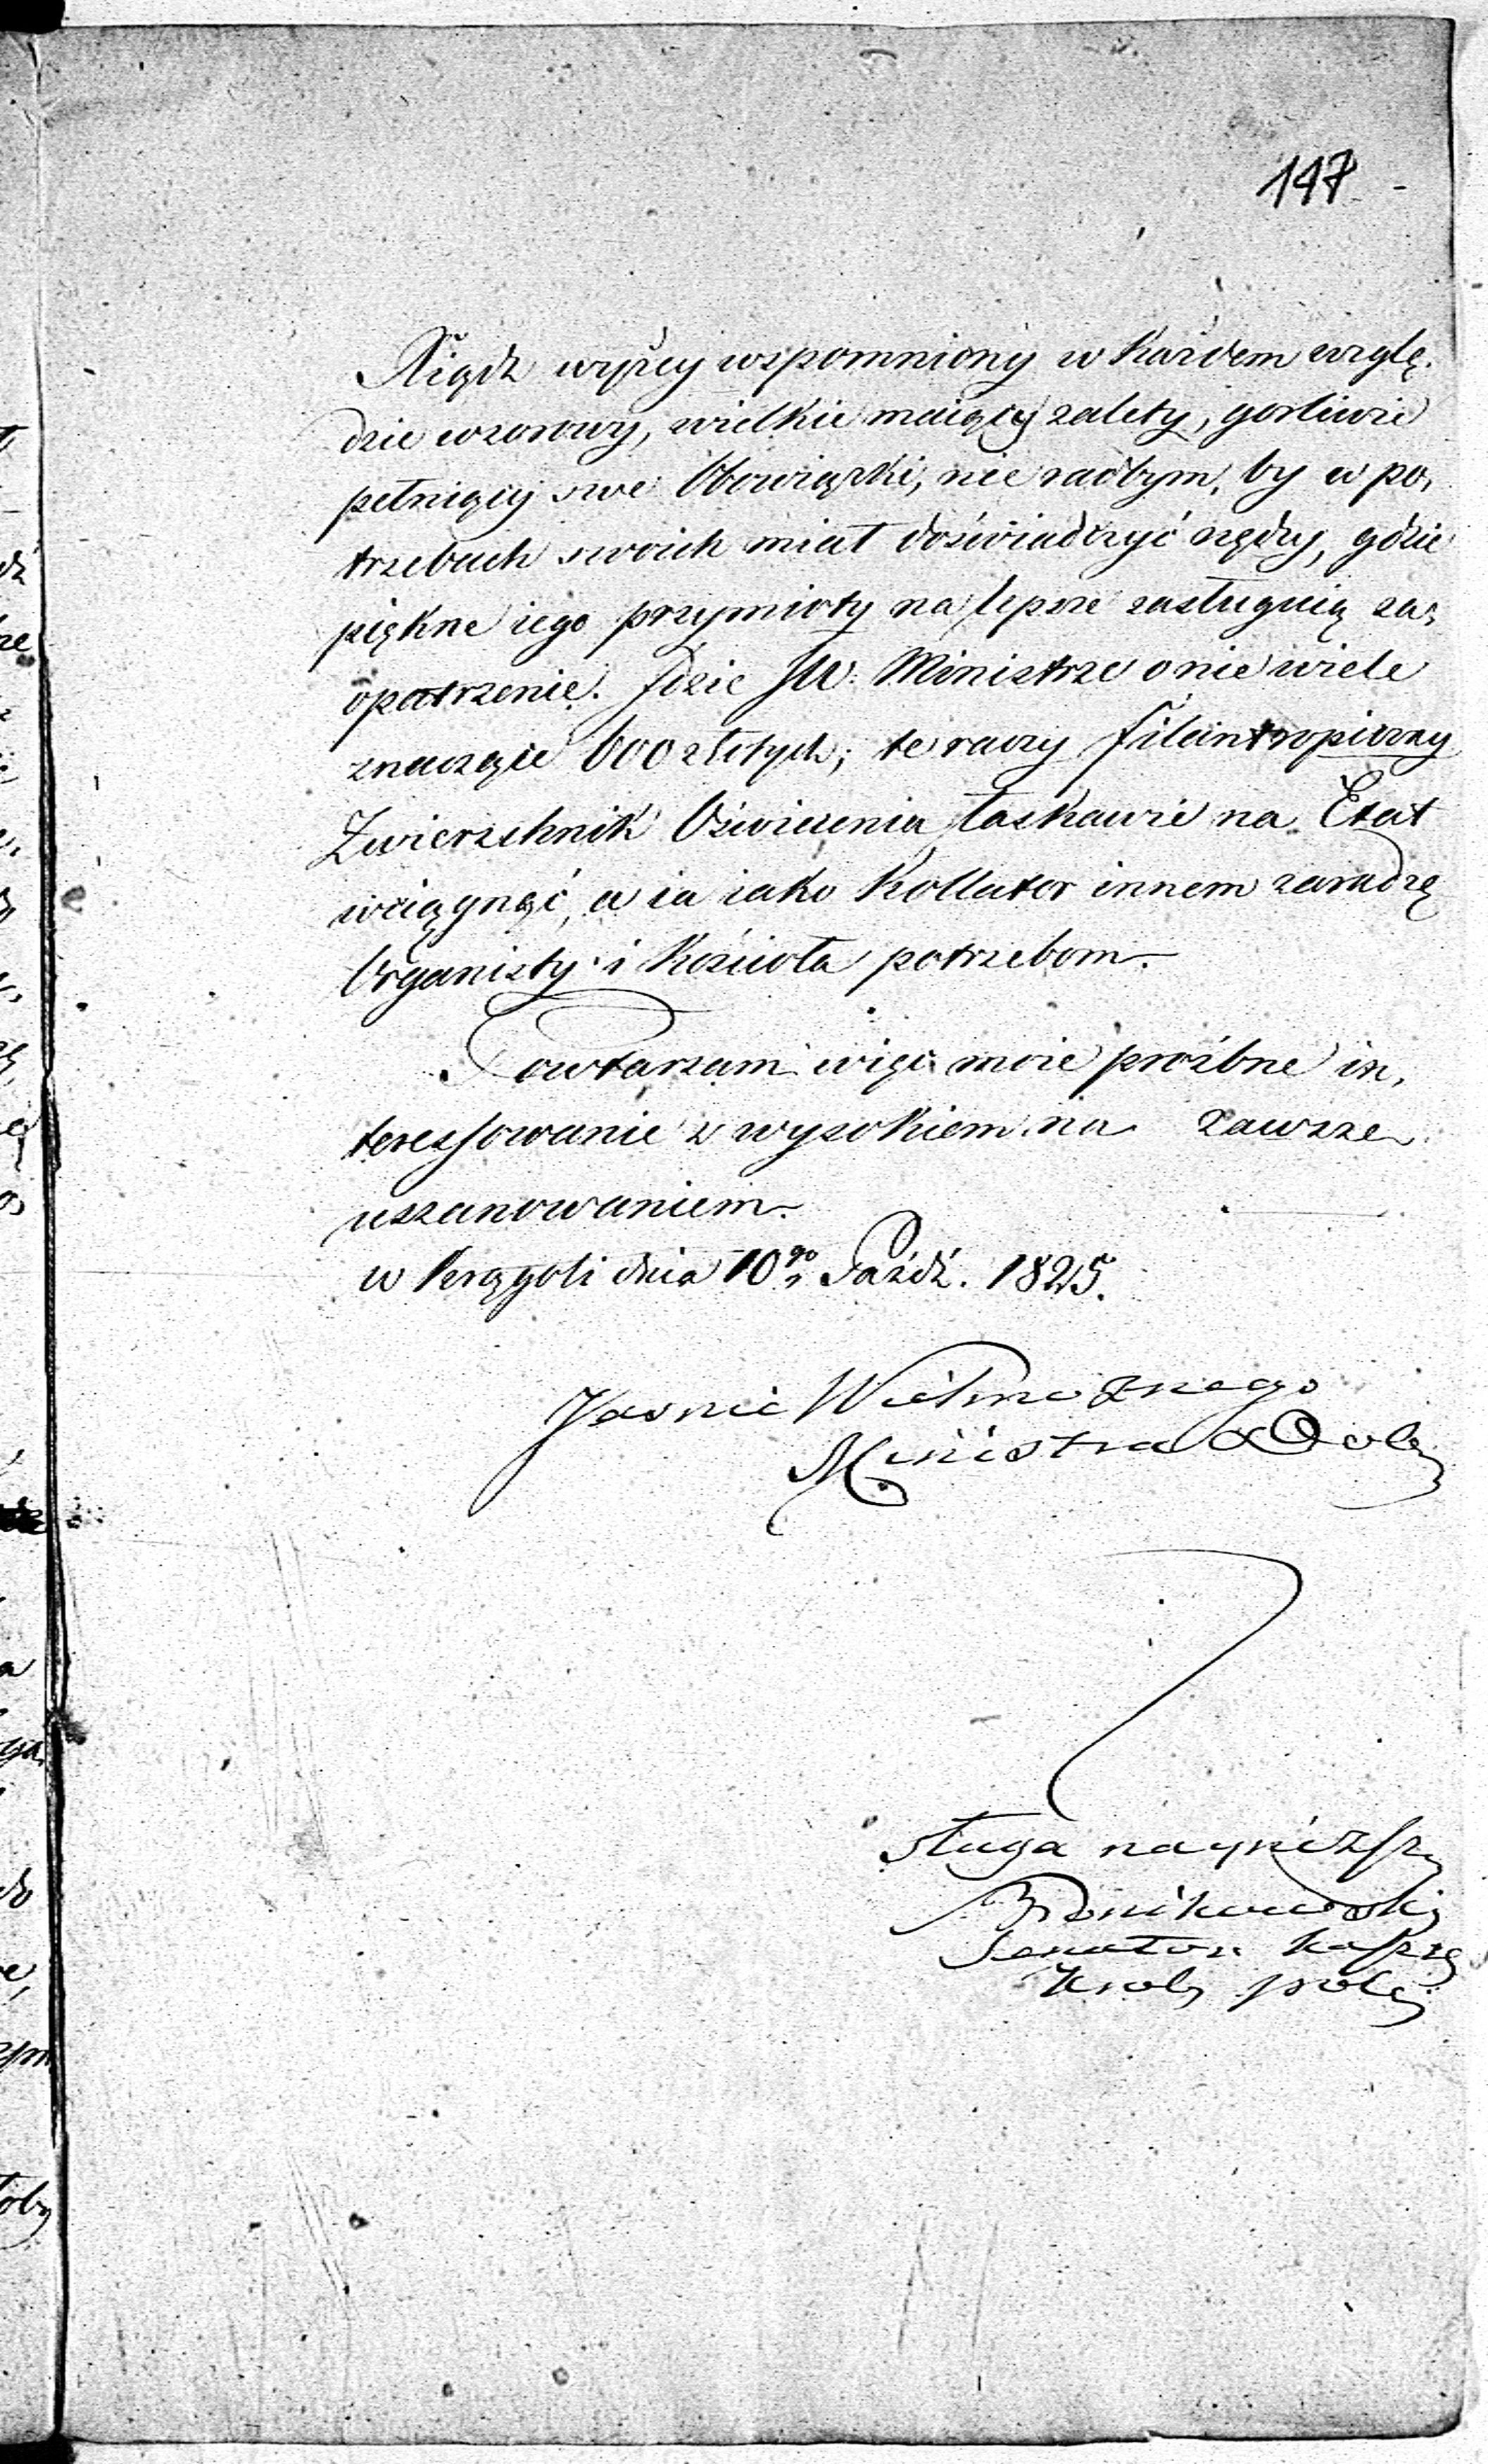 147
Xiądz wyżey wspomniony w każdem wzglę-
dzie wzorowy, wielkie maiący zalety, gorliwie
pełniący swe Obowiązki, nie radbym, by w po-
trzebach swoich miał doświadczyć nędzy, gdzie
piękne iego przymioty na lepsze zasługuią za-
opatrzenie. Idzie JW. Ministrze o nie wiele
znaczące 600 złotych; te raczy filantropiczny
Zwierzchnik Oświecenia łaskawie na Etat
wciągnąć, a ia iako Kollator innem zaradzę
Organisty i Kościoła potrzebom.
Powtarzam więc moie prożbne in-
teressowanie z wysokiem na zawsze
uszanowaniem.
w dnia 10go Paźdź. 1825.
Jasnie Wielmożnego
Ministra Dob
sługa nayniższy
Bronikowski
Senator Kasztę
Krole pols